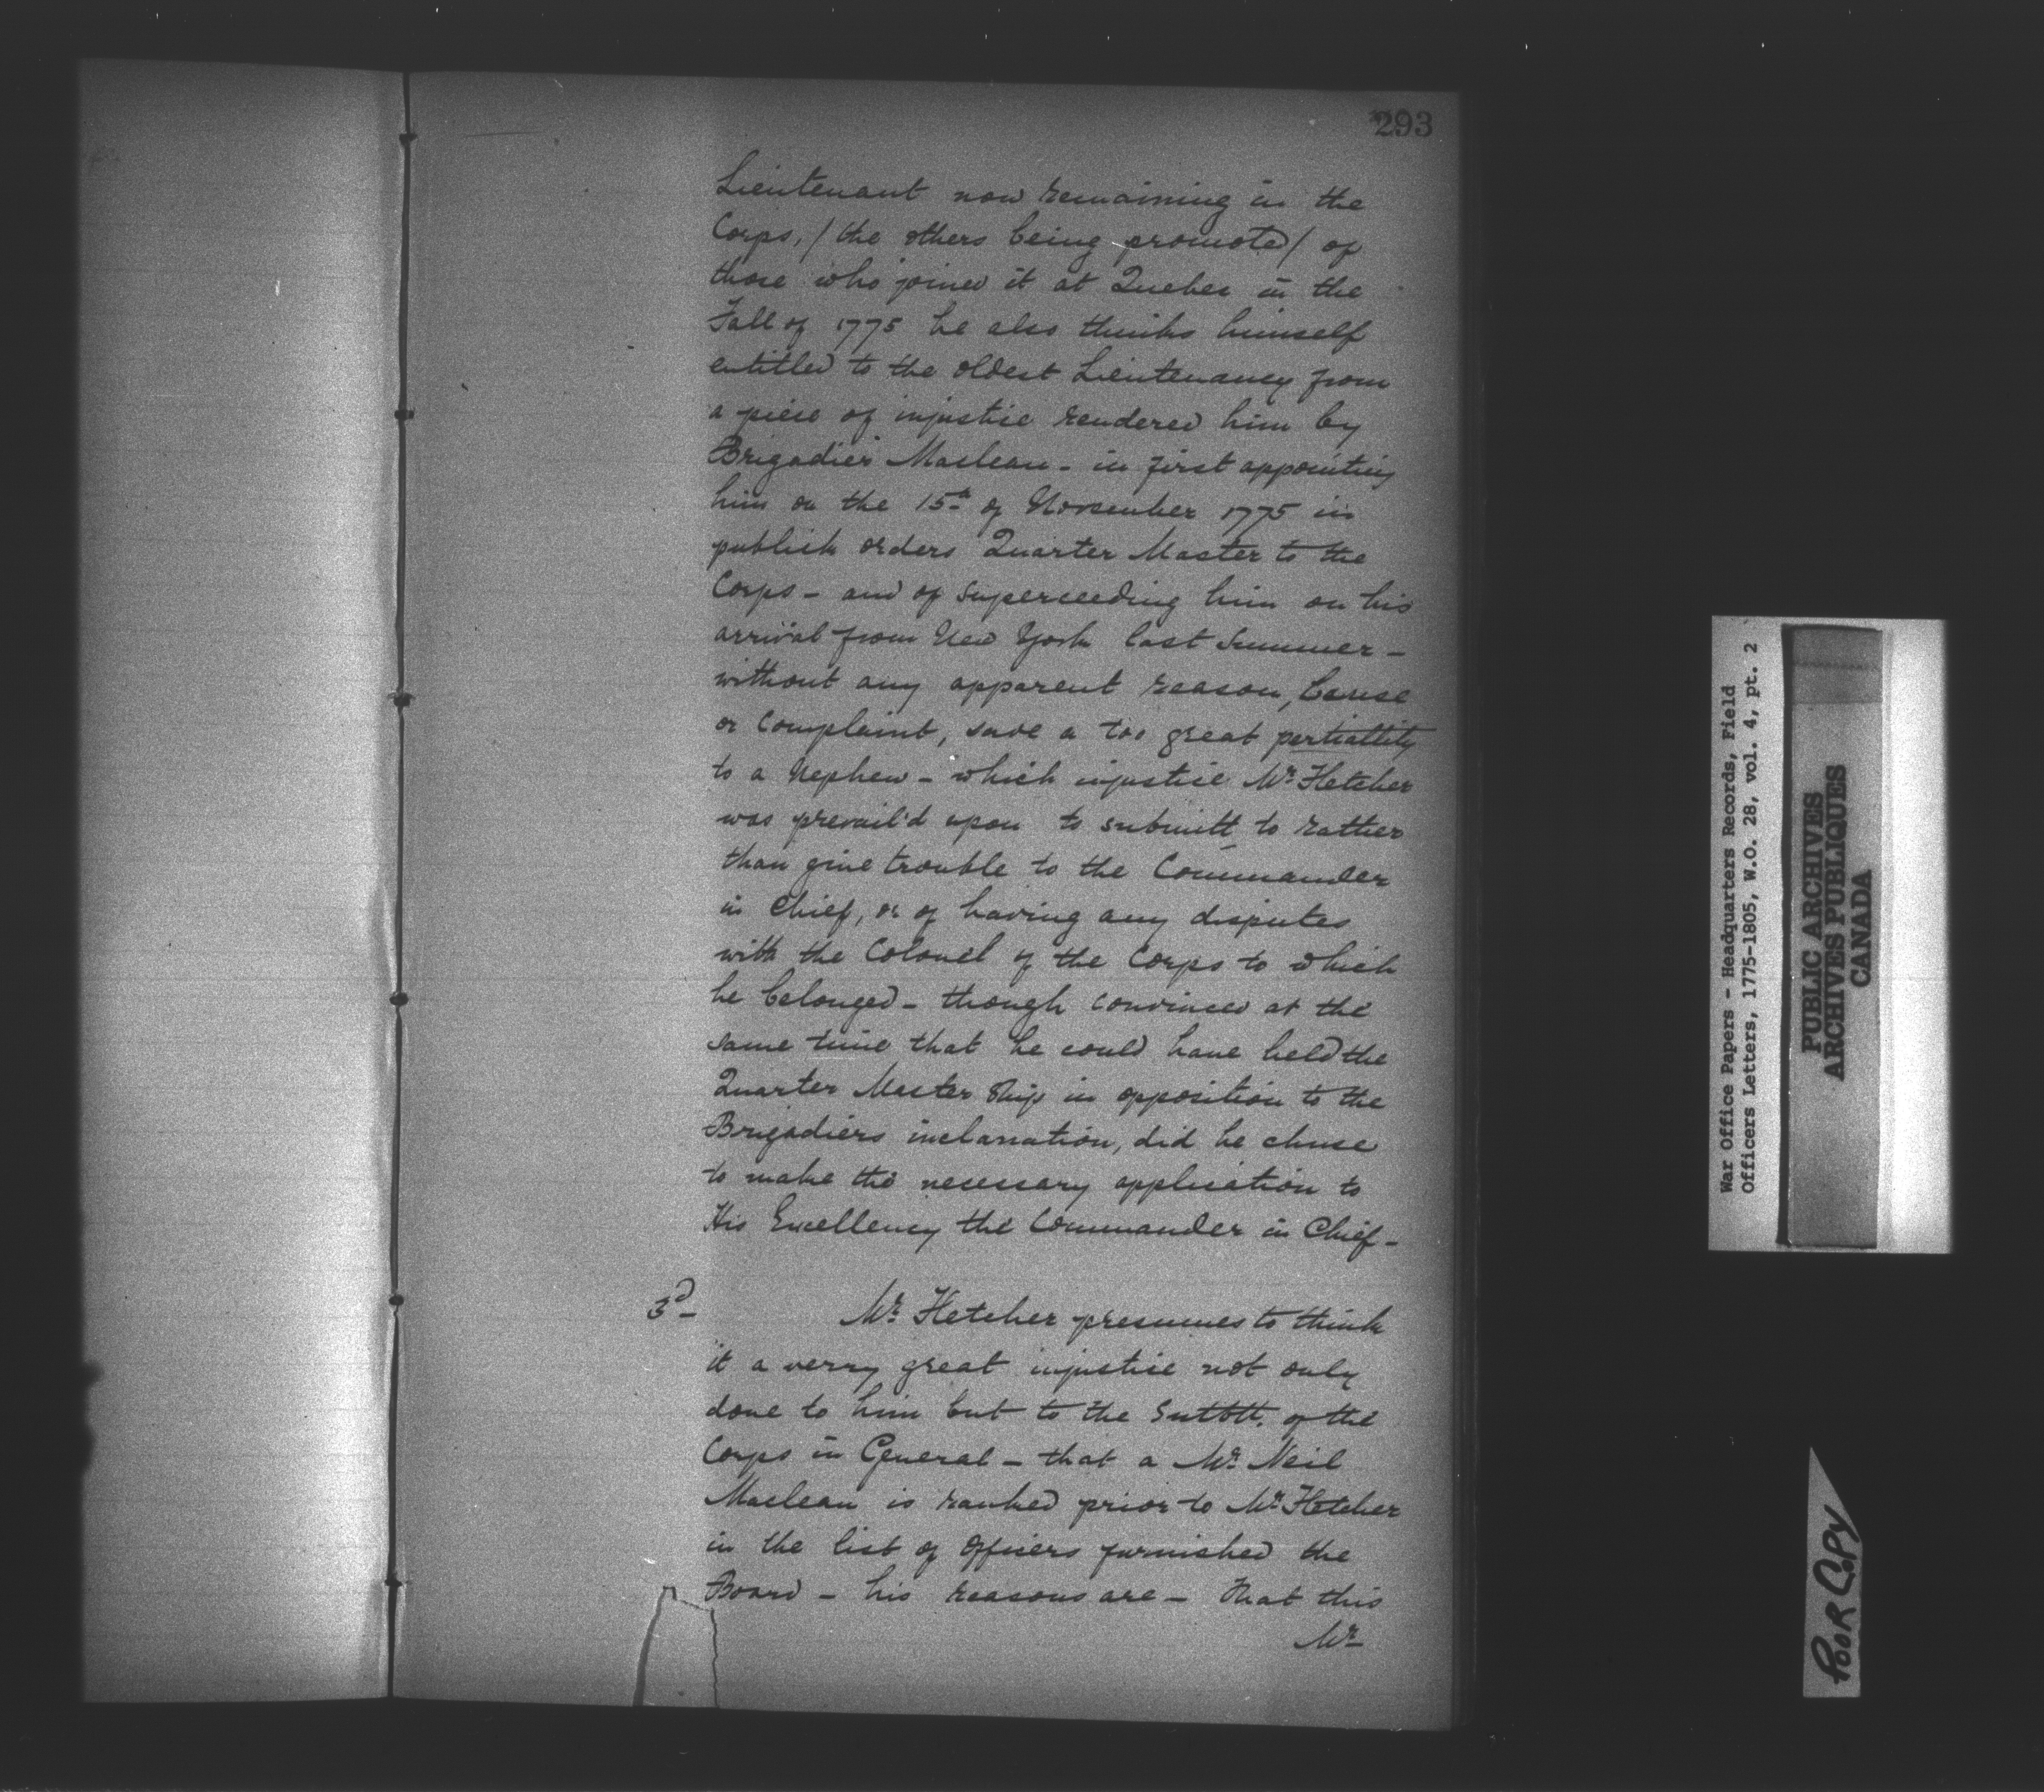 293
Lieutenant now remaining in the
Corps, / the others being promoted / of
those who joined it at Quebec in the
Fall of 1775 he also thinks himself
entitled to the oldest Lieutenancy from
a piece of injustice rendered him by
Brigadier Maclean - in first appointing
him on the 15th of November 1775 in
publick orders Quarter Master to the
Corps - and of superceeding him on his
arrival from New York last Summer -
without any apparent reason, Cause
or Complaint, save a too great partiallity
to a Nephew - which injustice Mr. Fletcher
was prevail'd upon to submitt to rather
than give trouble to the Commander
in Chief, or of having any disputes
with the Colonel of the Corps to which
he belonged - though convinced at the
same time that he could have held the
Quarter Master Ship in opposition to the
Brigadiers inclanation, did he chuse
to make the necessary application to
His Excellency the Commander in Chief -
3d - Mr. Fletcher presumes to think
it a verry great injustice not only
done to him but to the of the
Corps in General - that a Mr. Neil
Maclean is ranked prior to Mr. Fletcher
in the list of Officers furnished the
Board - his reasons are - that this
Mr
War Office Papers - Headquarters Records, Field
Officers Letters, 1775-1805, W.O. 28, vol. 4, pt. 2
PUBLIC ARCHIVES
ARCHIVES PUBLIQUES
CANADA
POOR COPY